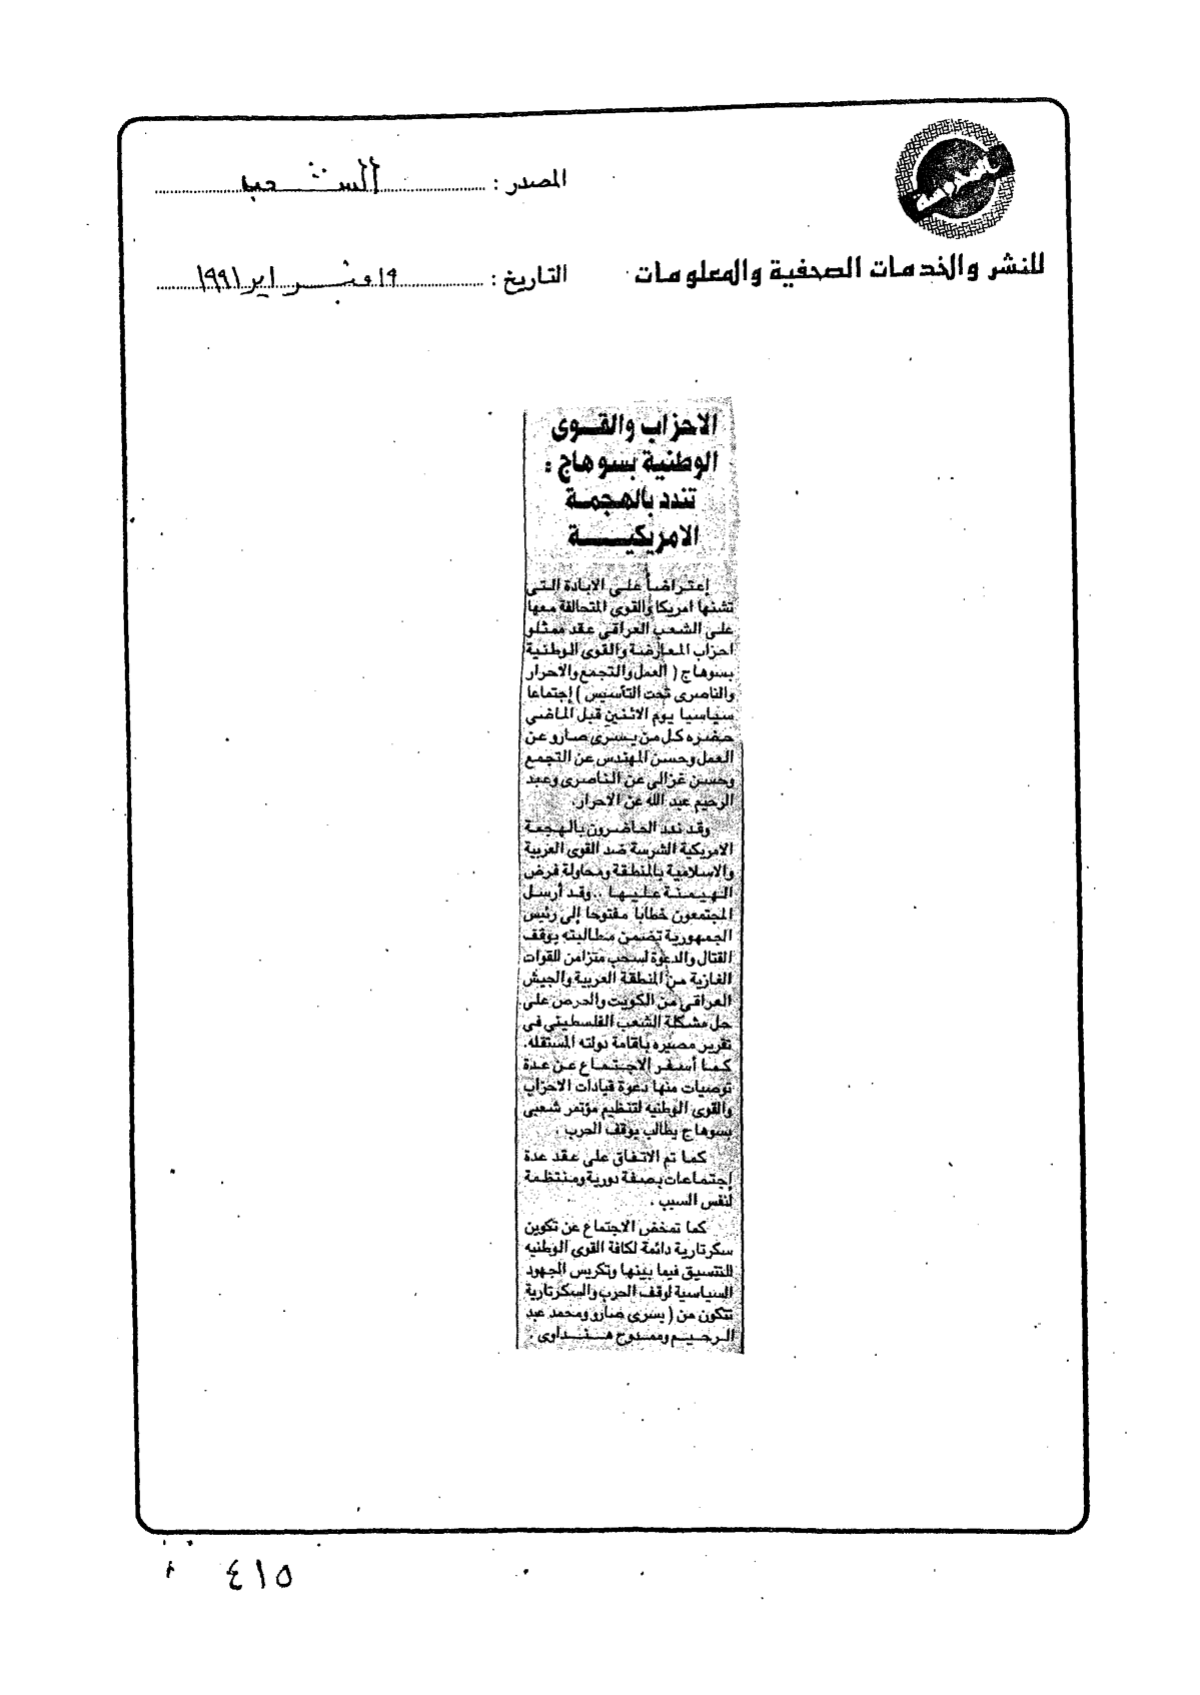 المصدر : الشعب
للنشر والخدمات الصحفية والمعلومات
التاريخ : ١٩ فبراير ١٩٩١
الاحزاب والقوى
الوطنية بسوهاج :
تندد بالهجمة
الامريكية
إعتراضاً على الابادة التى
تشنها امريكا والقوى المتحالفة معها
على الشعب العراقى عقد ممثلو
احزاب المعارضة والقوى الوطنية
بسوهاج ( العمل والتجمع والاحرار
والناصرى تحت التأسيس ) إجتماعا
سياسيا يوم الاثنين قبل الماضى
حضره كل من يسرى صارو عن
العمل وحسن المهندس عن التجمع
وحسن غزالى عن الناصرى وعبد
الرحيم عبد الله عن الاحرار.
وقد ندد الحاضرون بالهجمة
الامريكية الشرسة ضد القوى العربية
والاسلامية بالمنطقة ومحاولة فرض
الهيمنة عليها .. وقد أرسل
المجتمعون خطابا مفتوحا إلى رئيس
الجمهورية تضمن مطالبته بوقف
القتال والدعوة لسحب متزامن للقوات
الغازية من المنطقة العربية والجيش
العراقى من الكويت والحرص على
حل مشكلة الشعب الفلسطينى فى
تقرير مصيره باقامة دولته المستقله.
كما أسفر الاجتماع عن عدة
توصيات منها دعوة قيادات الاحزاب
والقوى الوطنيه لتنظيم مؤتمر شعبى
بسوهاج يطالب بوقف الحرب .
كما تم الاتفاق على عقد عدة
إجتماعات بصفة دورية ومنتظمة
لنفس السبب .
كما تمخض الاجتماع عن تكوين
سكرتارية دائمة لكافة القوى الوطنيه
للتنسيق فيما بينها وتكريس الجهود
السياسية لوقف الحرب والسكرتارية
تتكون من ( يسرى صارو ومحمد عبد
الرحيم وممدوح هنداوى .
٤١٥